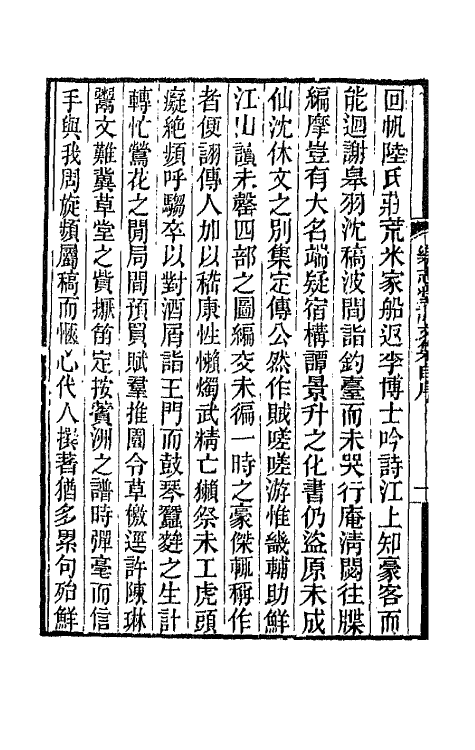 回帆陸氏莊荒米家船返李博士吟詩江上知豪客而
能迴謝皋羽沈稿波間詣釣臺而未哭行庵淸閟往牒
編摩豈有大名端疑宿構譚景升之化書仍盜原未成
仙沈休文之別集定傳公然作賊嗟嗟游惟畿輔助鮮
江山讖未罄四部之圖編交未徧一時之豪傑輒稱作
者便詡傳人加以嵇康性懶燭武精亡獺祭未工虎頭
癡絶頻呼騶卒以對酒屑詣王門而鼓琴蠶麰之生計
轉忙鶯花之閒局間預買賦羣推園令草檄遥許陳琳
鬻文難冀草堂之貲摭笛定按蘋洲之譜時彈毫而信
手與我周旋頻屬稿而愜心代人撰著猶多累句殆鮮
樂志堂文集自序
一